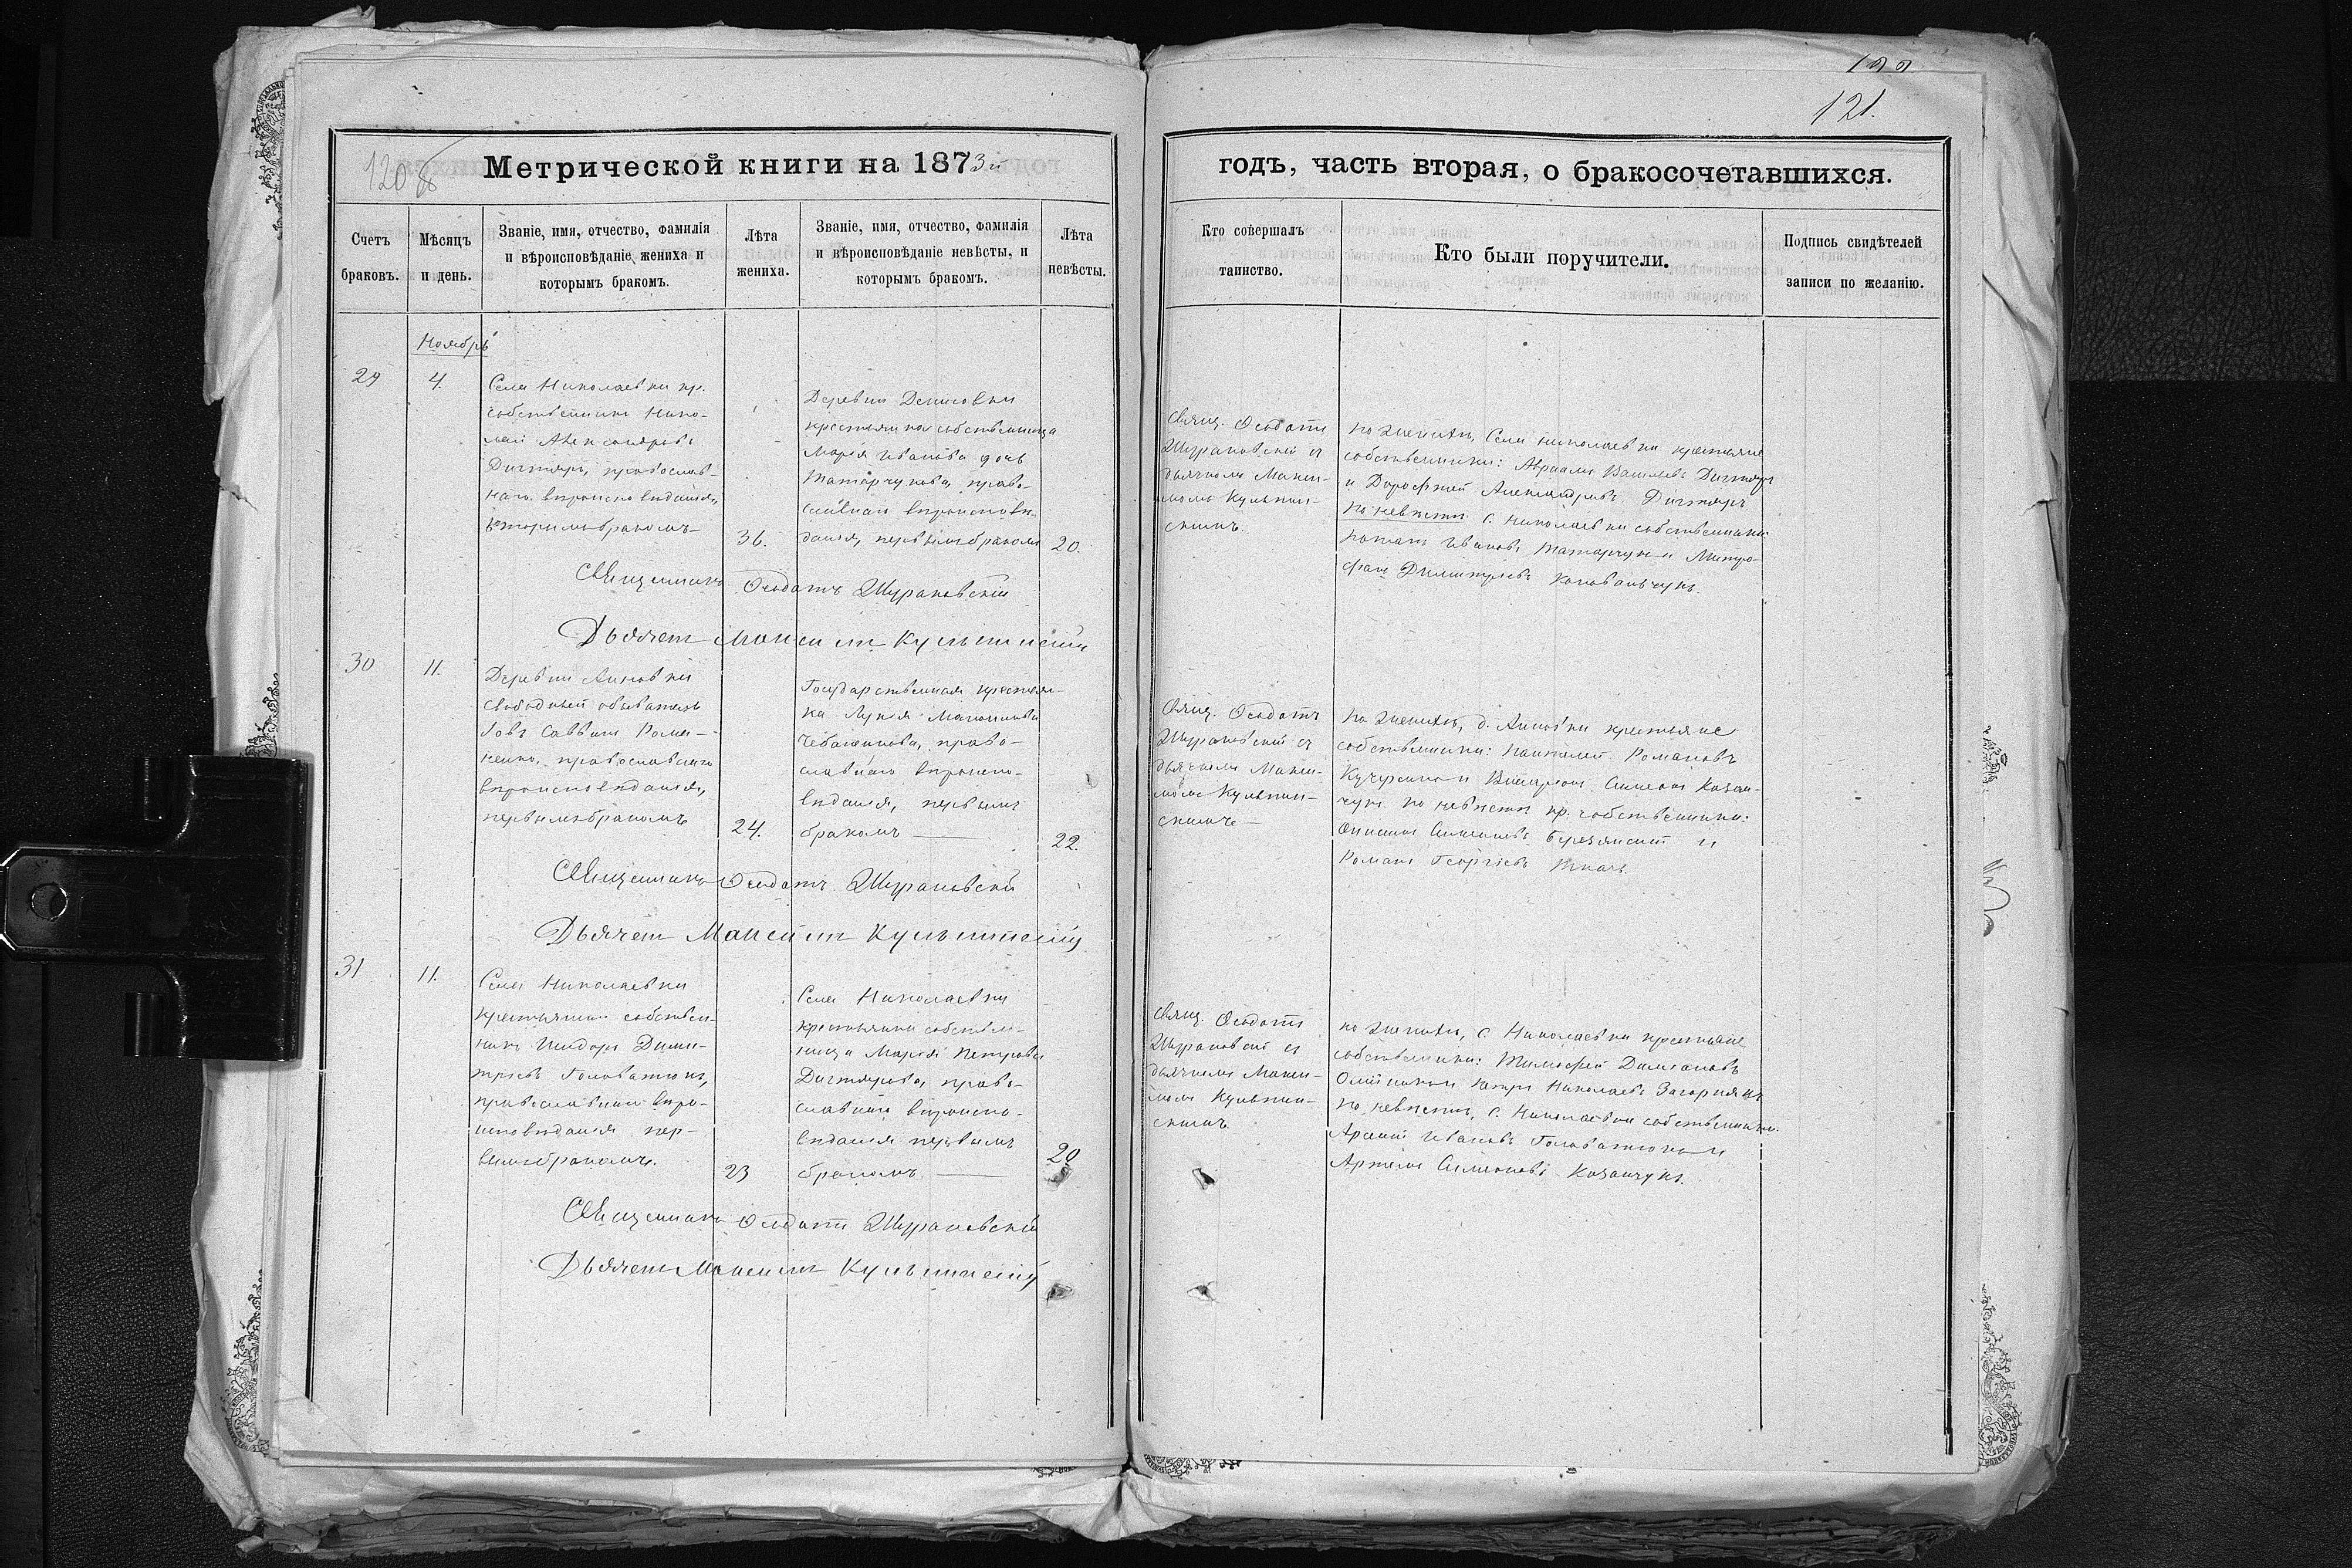 121.
120 б
Метрической книги на 1873й
годъ, часть вторая, о бракосочетавшихся.
Счетъ браковъ.
Мѣсяцъ и день.
Званіе, имя, отчество, фамилія
и вѣроисповѣданіе жениха и
которымъ бракомъ.
Лѣта жениха.
Званіе, имя, отчество, фамилія
и вѣроисповѣданіе невѣсты, и
которымъ бракомъ.
Лѣта невѣсты.
Кто совершалъ
таинство.
Кто были поручители.
Подпись свидѣтелей
записи по желанію.
Ноябрь
29
4.
Села Николаевки кр.
собственникъ Нико-
лай Александровъ
Дигтярь, православ-
наго вѣроисповѣданія,
вторымъ бракомъ
36.
Деревни Денисовки
крестьянка собственница
Марія Иванова дочь
Татарчукова, право-
славнаго вѣроисповѣ
данія, первымъ бракомъ
20.
Свящ. Ѳеодотъ
Шурановскій съ
дьячкомъ Макси-
момъ Кульчин-
скимъ.
по женихѣ, Села Николаевки крестьяне
собственники: Авраамъ Василевъ Дигтярь
и Дорофтей Александровъ Дигтярь
по невѣстѣ с. Николаевки собственники
Иванъ Татарчукъ и Митро-
фанъ Димитріевъ Коновальчукъ.
Священникъ Ѳеодотъ Шурановскій
Дьячекъ Максимъ Кульчинскій
30
11.
Деревни Анновки
свободный обыватель
Іовъ Саввинъ Рома-
ненко, православнаго
вѣроисповѣданія,
первымъ бракомъ
24.
Государственная крестьян-
ка Лукія Максимова
православнаго вѣроиспо-
вѣданія, первымъ
бракомъ
22.
Свящ. Ѳеодотъ
Шурановскій съ
дьячкомъ Макси-
момъ Кульчин-
скимъ
по женихѣ, д. Анновки крестьяне
собственники: Пантелей Романовъ
Симеонъ Козан-
чукъ по невѣстѣ кр. собственники:
Онисимъ Симеоновъ и
Романъ Георгіевъ Ткачъ.
Священникъ Ѳеодотъ Шурановскій
Дьячекъ Максимъ Кульчинскій
31
11.
Села Николаевки
крестьянинъ собствен-
никъ Исидоръ Дими-
тріевъ Головатюкъ,
православнаго вѣро-
исповѣданія пер-
вымъ бракомъ.
23
Села Николаевки
крестьянка собствен-
ница Марія Петрова
Дигтярева, право-
славнаго вѣроиспо-
вѣданія первымъ
бракомъ
20
Свящ. Ѳеодотъ
Шурановскій съ
дьячкомъ Макси-
момъ Кульчин-
скимъ.
по женихѣ, с. Николаевки крестьяне
собственники: Тимофей Даміановъ
Олійникъ и Петръ Николаевъ Загорнякъ
по невѣстѣ, с. Николаевки собственники
Арсеній Ивановъ Головатюкъ и
Артемъ Симеоновъ Козанчукъ.
Священникъ Ѳеодотъ Шурановскій
Дьячекъ Максимъ Кульчинскій